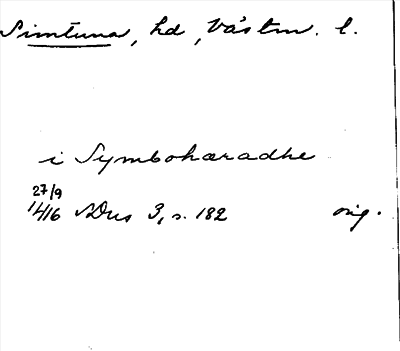 Simtuna, hd, Västm. l.
i Symbohæradhe
27/9
1416 SDns 3, s. 182 orig.